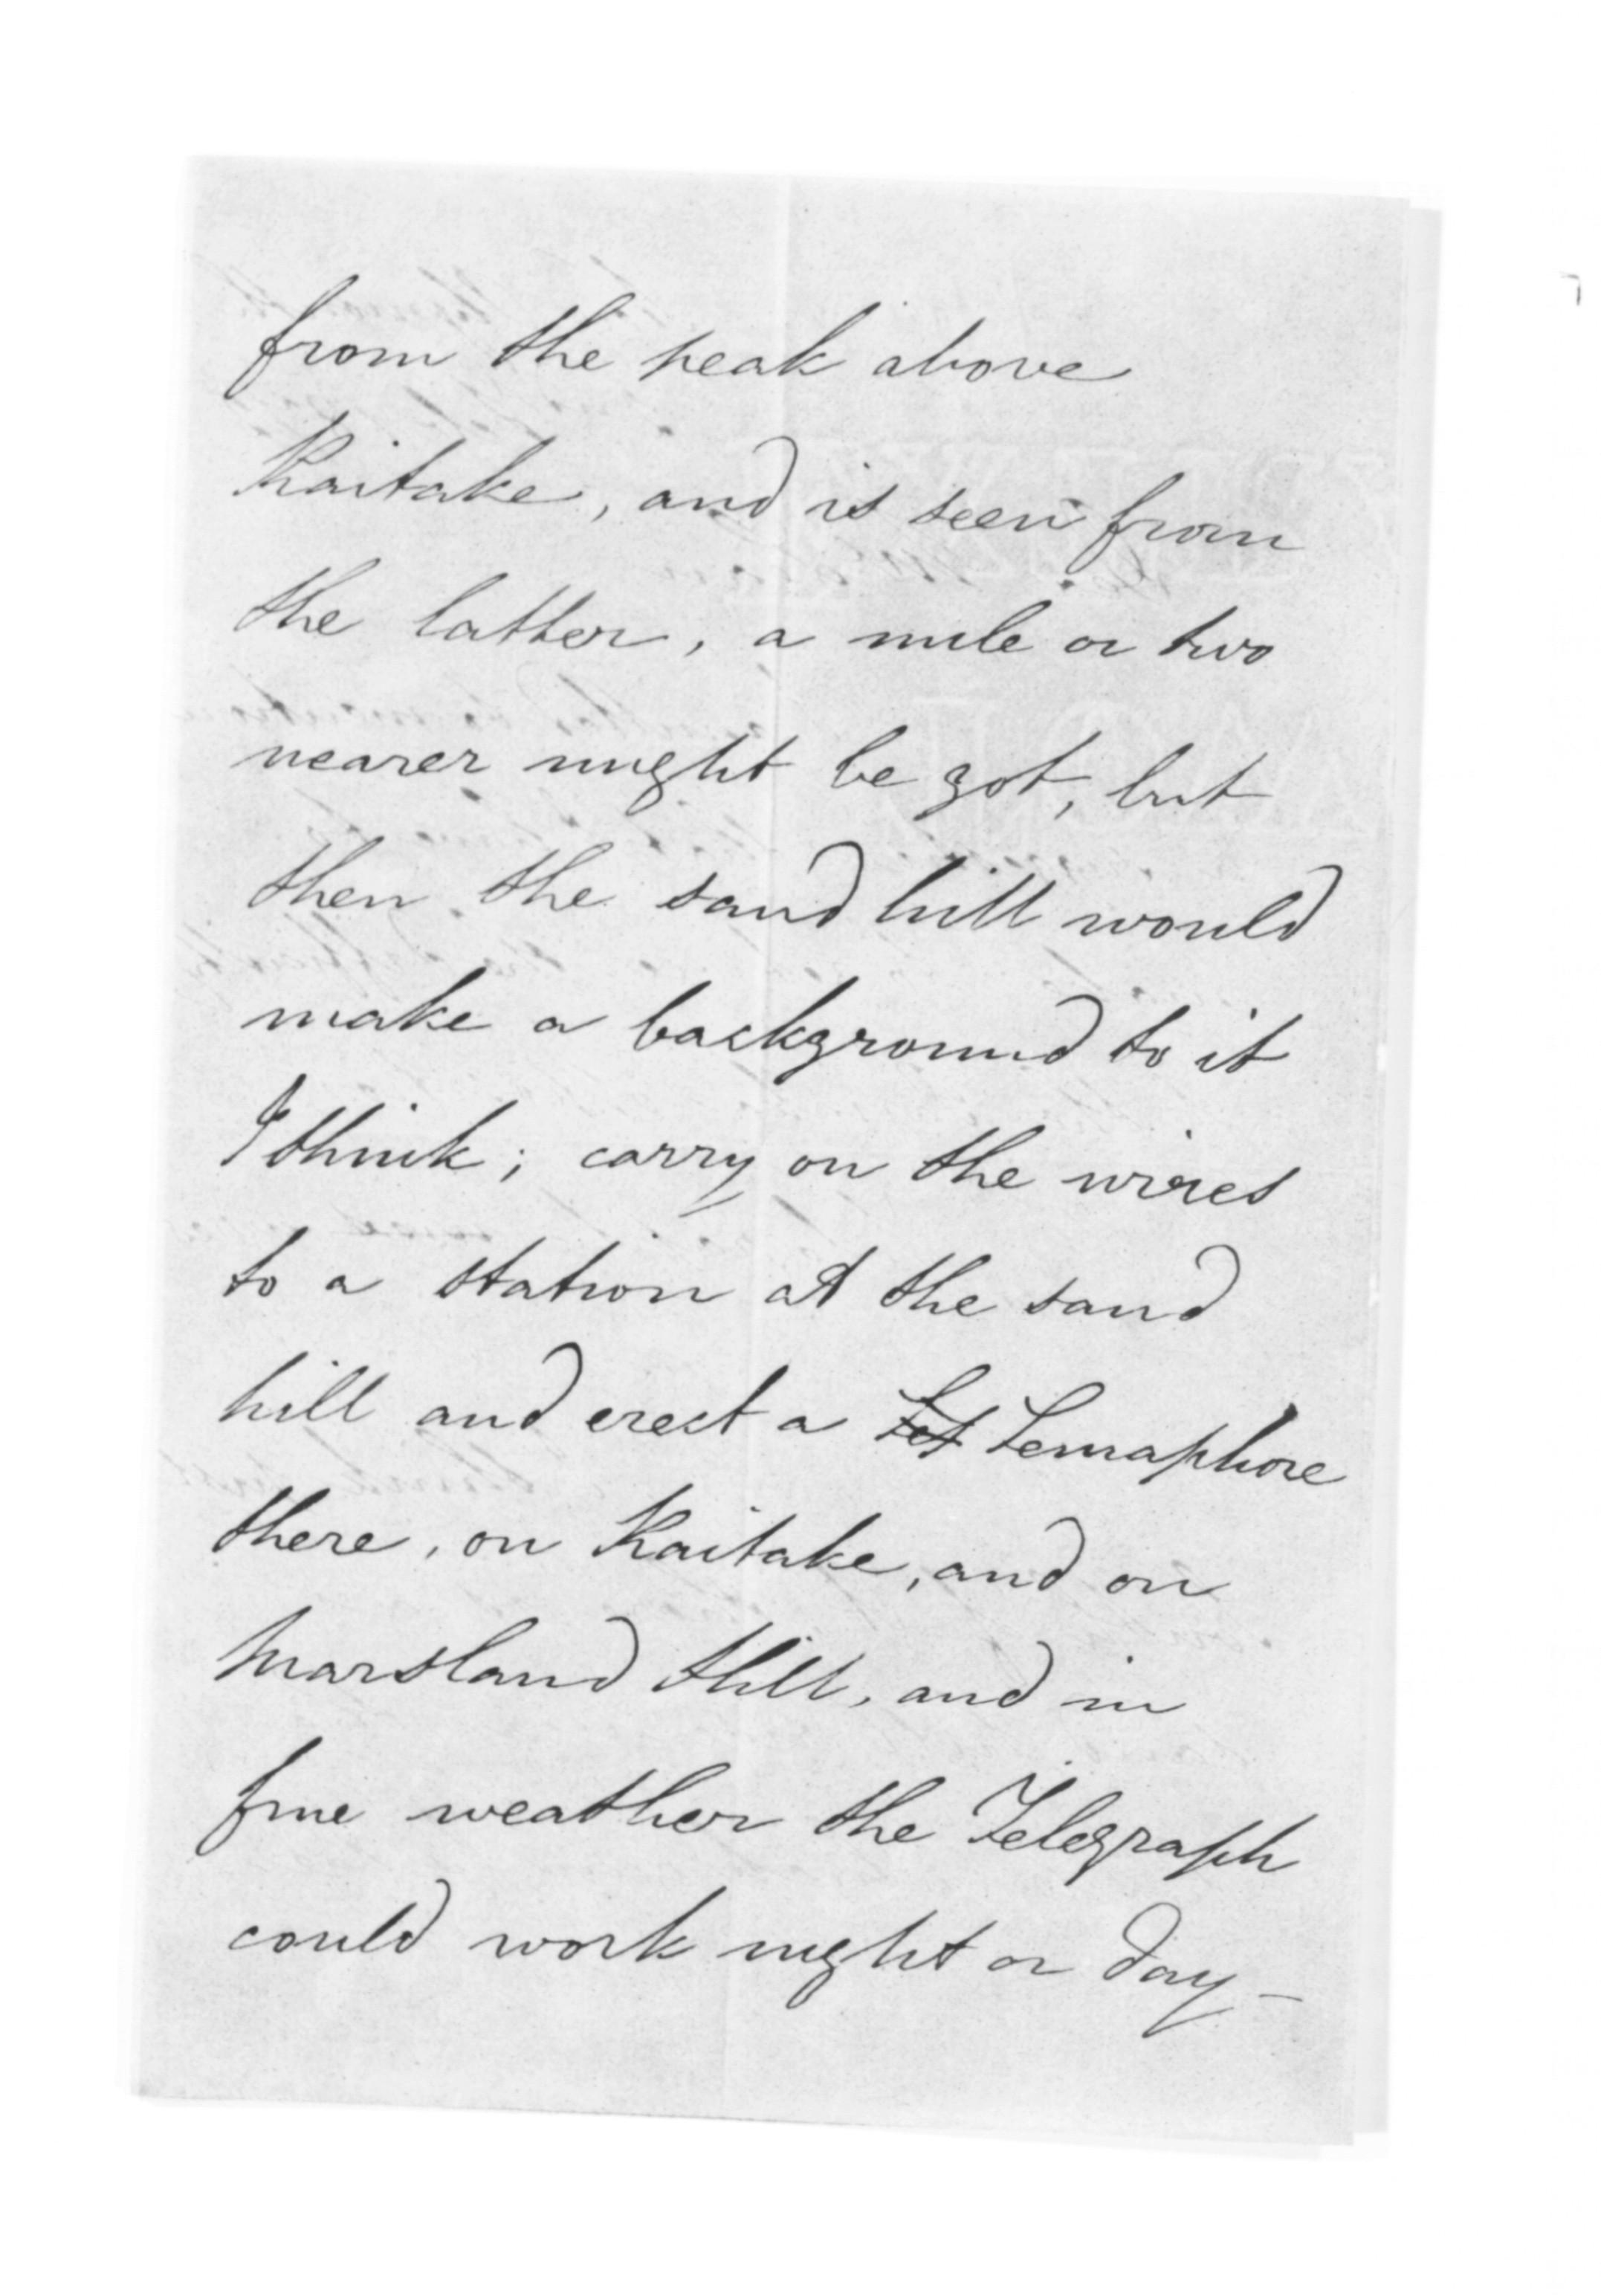 from the peak above
Kaitake, and is seen from
the latter, a mile or two
nearer might be got, but
then the sand hill would
make a background to it
I think; carry on the wires
to a station at the sand
hill and erect a Semaphore
there, on Kaitake, and on
Marsland Hill, and in
fine weather the Telegraph
could work night or day –